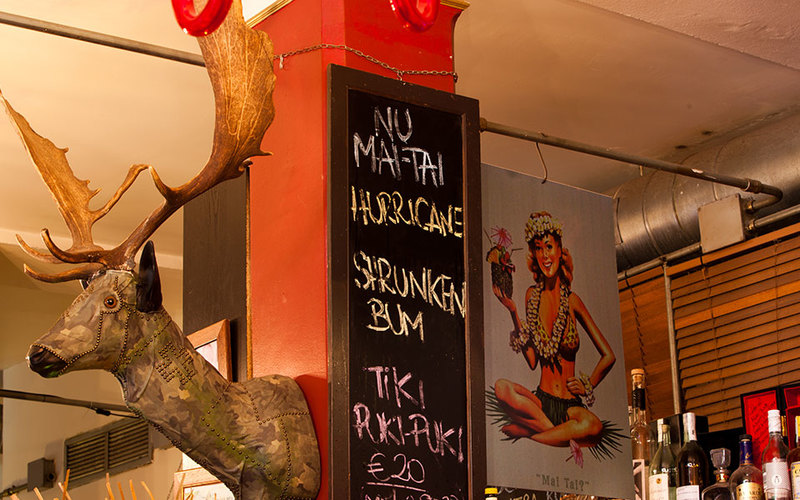 NU
MAI-TAI
HURRICANE
SHRUNKEN
BUM
TIKI
PUKI-PUKI
€20
"Mai Tai?"